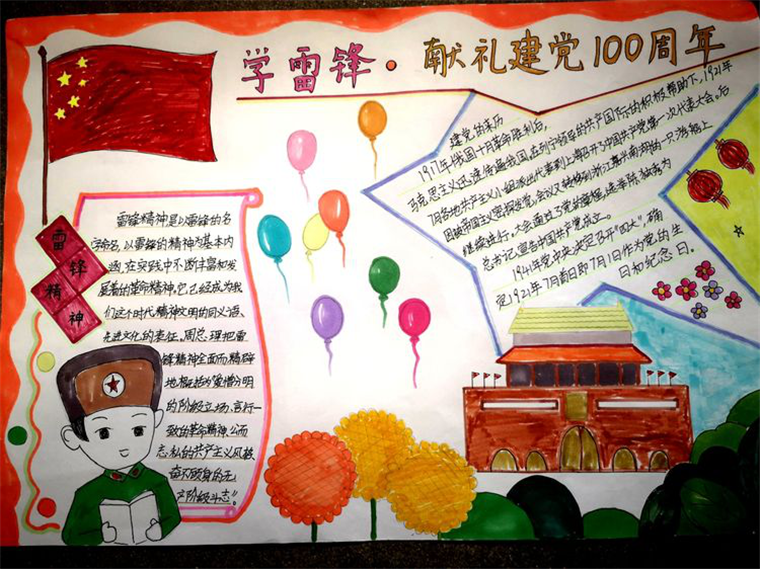 学雷锋·献礼建党100周年
雷
锋
精
神
雷锋精神是以雷锋的名
字命名,以雷锋的精神为基本内
涵,在实践中不断丰富和发
展着的革命精神,它已经成为我
们这个时代精神文明的同义语、
先进文化的表征。周总理把雷
锋精神全面而精确
地概括为“爱憎分明
的阶级立场、言行一
致的革命精神、公而
忘私的共产主义风格、
奋不顾身的无
产阶级斗志”。
建党的来历
1917年俄国十月革命胜利后,
马克思主义迅速传遍我国,在列宁领导的共产国际的积极帮助下,1921年
7月各地共产主义小组派出代表到上海召开了中国共产党第一次代表大会。后
因被帝国主义密探发觉,会议又转移到浙江嘉兴南湖的一只游船上
继续进行。大会通过了党的章程,选举陈独秀为
总书记,宣告中国共产党成立。
1941年党中央决定召开“四大”确
定1921年7月首日即7月1日作为党的生
日和纪念日。